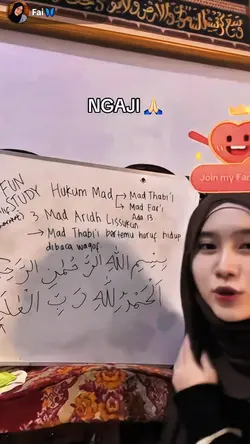 Fai🦋
NGAJI 🙏
Join my Fan
FUN
STUDY
Hukum Mad → Mad Thabi'i
→ Mad Far'i
Ada 13
3. Mad Aridh Lissukun
→ Mad Thabi'i bertemu huruf hidup
dibaca waqof.
بِسْمِ اللهِ الرَّحْمٰنِ الرَّحِيْ
اَلْحَمْدُ لِلّٰهِ رَبِّ الْعٰلَ